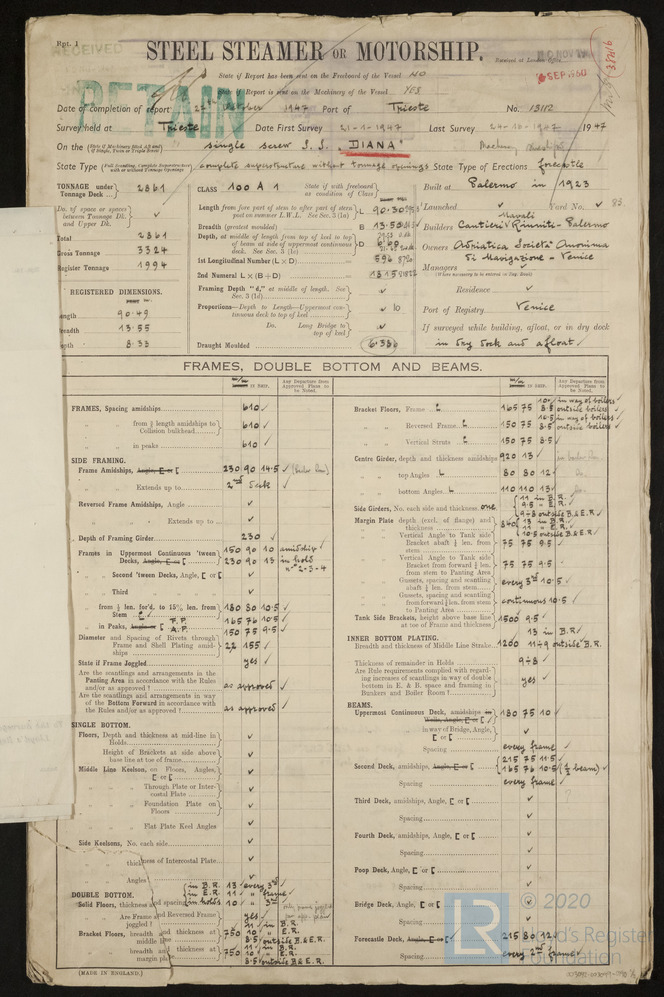 Rpt. 1
RECEIVED
RETAIN
STEEL STEAMER OR MOTORSHIP.
State if Report has been sent on the Freeboard of the Vessel NO
Received at London Office
6 SEP 1960
Report is sent on the Machinery of the Vessel YES
Date of completion of report 25th October 1947 Port of Trieste No. 13112
Survey held at Trieste Date First Survey 21-10-1947 Last Survey 24-10-1947 1947
On the single screw S.S. "DIANA"
State Type complete superstructure without tonnage openings State Type of Erections forecastle
TONNAGE under Tonnage Deck 2861
Do. of space or spaces between Tonnage Dk. and Upper Dk. ✓
Total 2861
Gross Tonnage 3324
Register Tonnage 1994
REGISTERED DIMENSIONS.
ength 90.49
readth 13.55
epth 8.33
CLASS 100 A 1 State if with freeboard as condition of Class
Length from fore part of stem to after part of stern post on summer L.W.L. See Sec. 3 (1a) L 90.30
Breadth (greatest moulded) B 13.50
Depth, at middle of length from top of keel to top of beam at side of uppermost continuous deck. See Sec. 3 (1c) D
1st Longitudinal Number (L × D) 596
2nd Numeral L × (B + D) 1815
Framing Depth "d," at middle of length. See Sec. 3 (1d) ✓
Proportions—Depth to Length—Uppermost continuous deck to top of keel ✓ 10
Do. Long Bridge to top of keel ✓
Draught Moulded 6.386
Built at Palermo in 1923
Launched ✓ Yard No. ✓ 83.
Builders Cantieri Navali Riuniti - Palermo
Owners Adriatica Società Anonima
di Navigazione - Venice
Managers ✓
(Where necessary to be entered in Reg. Book)
Residence ✓
Port of Registry Venice
If surveyed while building, afloat, or in dry dock
in dry dock and afloat
FRAMES, DOUBLE BOTTOM AND BEAMS.
Any Departure from Approved Plans to be Noted.
FRAMES, Spacing amidships 610 ✓
from ⅕ length amidships to Collision bulkhead 610 ✓
in peaks 610 ✓
SIDE FRAMING.
Frame Amidships, Angle, [ or [ 230 90 14.5 ✓
Extends up to 2nd Deck ✓
Reversed Frame Amidships, Angle ✓
Extends up to ✓
Depth of Framing Girder 230 ✓
Frames in Uppermost Continuous 'tween Decks, Angle, [ or [ 150 90 10 amidship
230 90 13 in hold
" 2-3-4
Second 'tween Decks, Angle, [ or [ ✓
Third ✓
from ⅕ len. for'd. to 15% len. from Stem 180 80 10.5 ✓
in Peaks, Angle or [ F.P. 165 76 10.5 ✓
A.P. 150 75 9.5 ✓
Diameter and Spacing of Rivets through Frame and Shell Plating amidships 22 155 ✓
State if Frame Joggled yes ✓
Are the scantlings and arrangements in the Panting Area in accordance with the Rules and/or as approved? as approved ✓
Are the scantlings and arrangements in way of the Bottom Forward in accordance with the Rules and/or as approved? as approved ✓
SINGLE BOTTOM.
Floors, Depth and thickness at mid-line in Holds ✓
Height of Brackets at side above base line at toe of frame ✓
Middle Line Keelson, on Floors, Angles, [ or [ ✓
Through Plate or Intercostal Plate ✓
Foundation Plate on Floors ✓
Flat Plate Keel Angles ✓
Side Keelsons, No. each side ✓
thickness of Intercostal Plate ✓
Angles ✓
DOUBLE BOTTOM.
Solid Floors, thickness and spacing in B.R. 13 every 3rd
in E.R. 11 " frame
in holds 10 " 3rd
Are Frame and Reversed Frame joggled? yes ✓
Bracket Floors, breadth and thickness at middle line 750 11 in B.R.
10 " E.R.
8.5 outside B.& E.R.
breadth and thickness at margin plate 750 11 in B.R.
10 " E.R.
8.5 outside B.& E.R.
Bracket Floors, Frame 165 75 10 in way of boilers
8.5 outside boilers
" " Reversed Frame 150 75 10.5 in way of boilers
8.5 outside boilers
" " Vertical Struts 150 75 8.5 ✓
Centre Girder, depth and thickness amidships 920 13
" " top Angles 80 80 12 ✓
" " bottom Angles 110 110 13 ✓
Side Girders, No. each side and thickness one 11 in B.R.
9.5 " E.R.
9-8 outside B.& E.R.
Margin Plate depth (excl. of flange) and thickness 840 13 in B.R.
11 " E.R.
10.5 outside B.& E.R.
Vertical Angle to Tank side Bracket abaft ⅕ len. from stem 75 75 9.5 ✓
Vertical Angle to Tank side Bracket from forward ⅕ len. from stem to Panting Area 75 75 9.5 ✓
Gussets, spacing and scantling abaft ⅕ len. from stem every 3rd 10.5 ✓
Gussets, spacing and scantling from forward ⅕ len. from stem to Panting Area continuous 10.5 ✓
Tank Side Brackets, height above base line at toe of Frame and thickness 1500 9.5 ✓
INNER BOTTOM PLATING.
Breadth and thickness of Middle Line Strake 1200 13 in B.R.
11÷9 outside B.R.
Thickness of remainder in Holds 9÷8 ✓
Are Rule requirements complied with regarding increases of scantlings in way of double bottom in E. & B. space and framing in Bunkers and Boiler Room? yes ✓
BEAMS.
Uppermost Continuous Deck, amidships 180 75 10 ✓
in way of Bridge, Angle, [ or [ ✓
Spacing every frame ✓
Second Deck, amidships, Angle, [ or [ 215 75 11.5
165 76 10.5 (½ beam) ✓
Spacing every frame ✓
Third Deck, amidships, Angle, [ or [ ✓
Spacing ✓
Fourth Deck, amidships, Angle, [ or [ ✓
Spacing ✓
Poop Deck, Angle, [ or [ ✓
Spacing ✓
Bridge Deck, Angle, [ or [ ✓
Spacing ✓
Forecastle Deck, Angle, [ or [ 215 80 12
Spacing every 2nd frame
[MADE IN ENGLAND.]
LR
© 2020
Lloyd's Register
Foundation